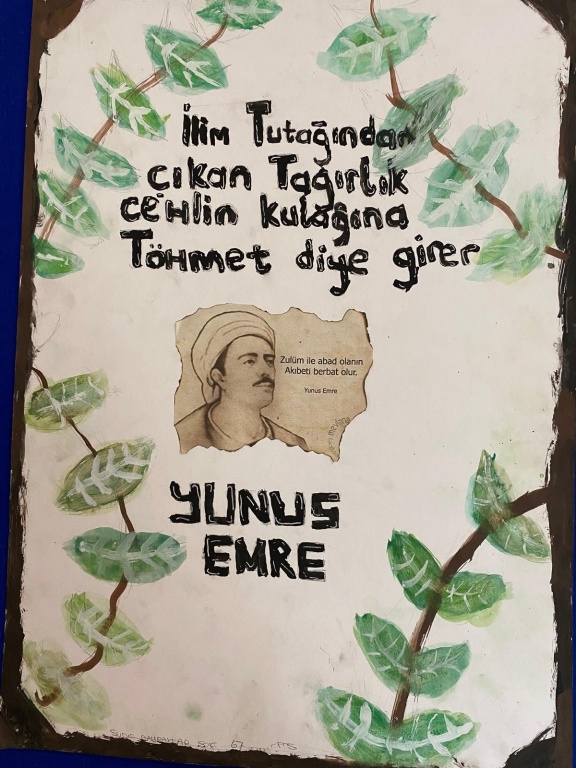 İlim Tutağından
çıkan Tağırlık
CeHlin kulağına
TöHmet diye girer
Zulüm ile abad olanın
Akıbeti berbat olur.
Yunus Emre
YUNUS
EMRE